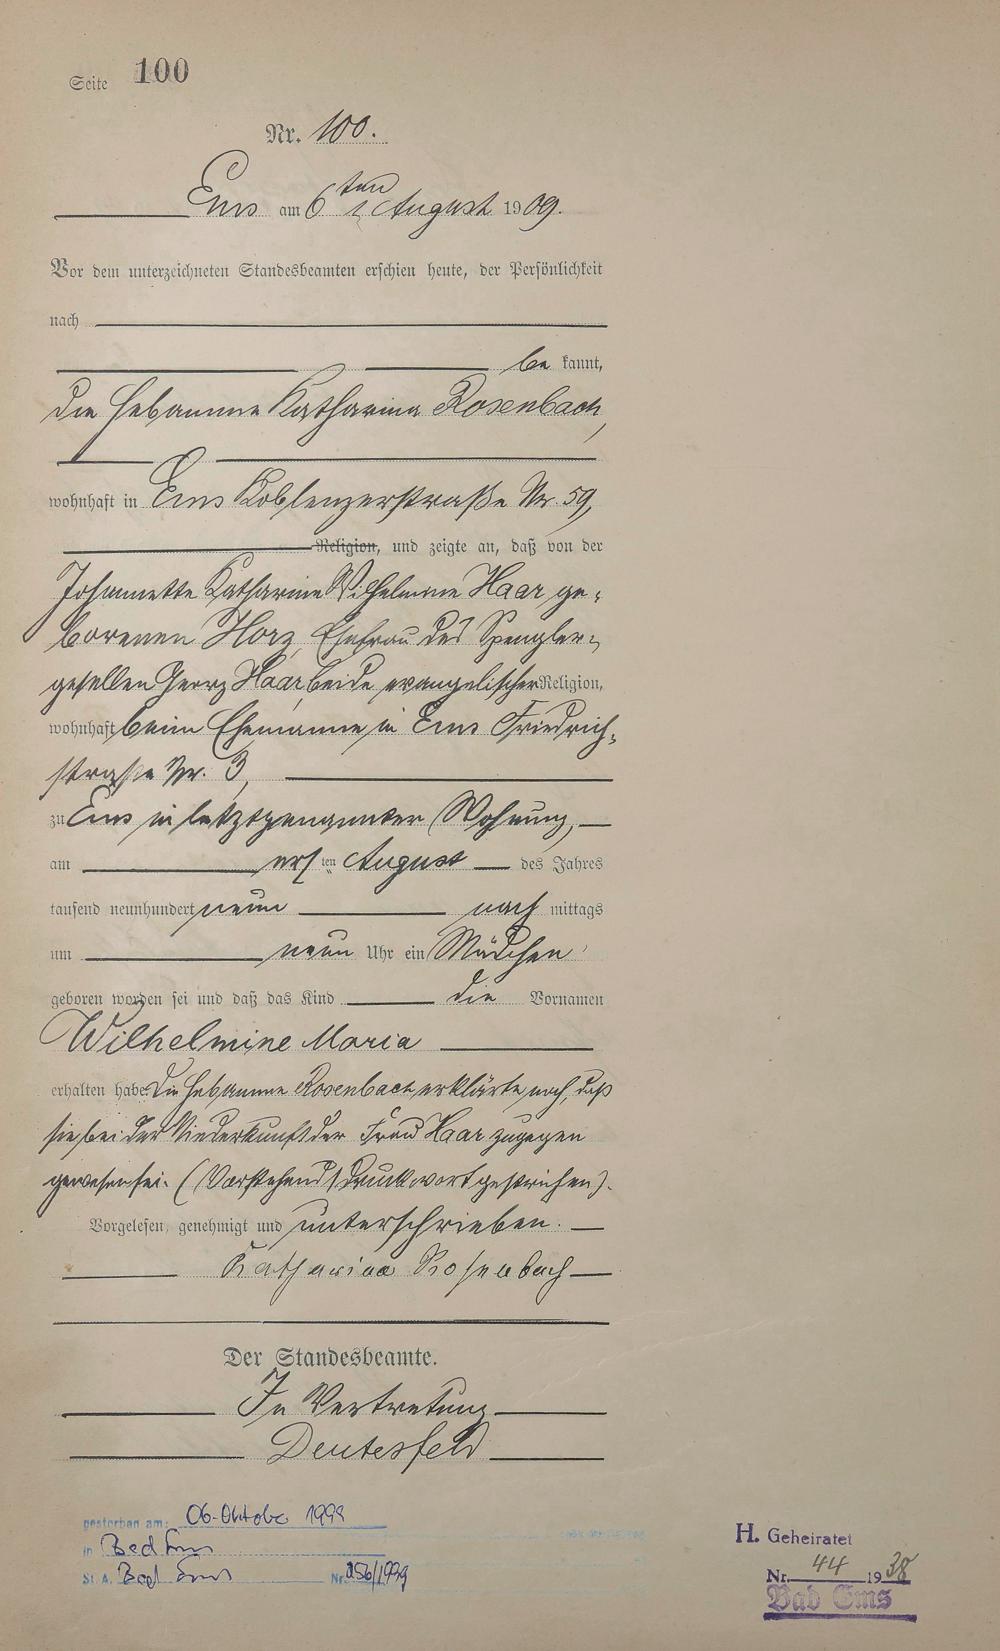 Seite 100
Nr. 100.
Ems am 6ten August 1909.
Vor dem unterzeichneten Standesbeamten erschien heute, der Persönlichkeit
nach
be kannt,
die Hebamme Katharina Rosenbach,
wohnhaft in Ems Koblenzerstraße Nr. 59,
Religion, und zeigte an, daß von der
Johannette Katharine Wilhelmine Haar ge-
borenen Horz, Ehefrau des Spengler-
gesellen Georg Haar, beide evangelischer Religion,
wohnhaft beim Ehemanne in Ems Friedrich-
straße Nr. 3,
zu Ems in letztgenannter Wohnung,
am ersten August des Jahres
tausend neunhundert neun nach mittags
um neun Uhr ein Mädchen
geboren worden sei und daß das Kind die Vornamen
Wilhelmine Maria
erhalten habe. Die Hebamme Rosenbach erklärte noch, daß
sie bei der Niederkunft der Frau Haar zugegen
gewesen sei. (Vorstehend 1 Druckwort gestrichen).
Vorgelesen, genehmigt und unterschrieben.
Katharina Rosenbach
Der Standesbeamte.
In Vertretung
Deutesfeld
gestorben am: 06. Oktober 1999
in Bad Ems
St. A. Bad Ems Nr. 256/1999
H. Geheiratet
Nr. 44 1938
Bad Ems